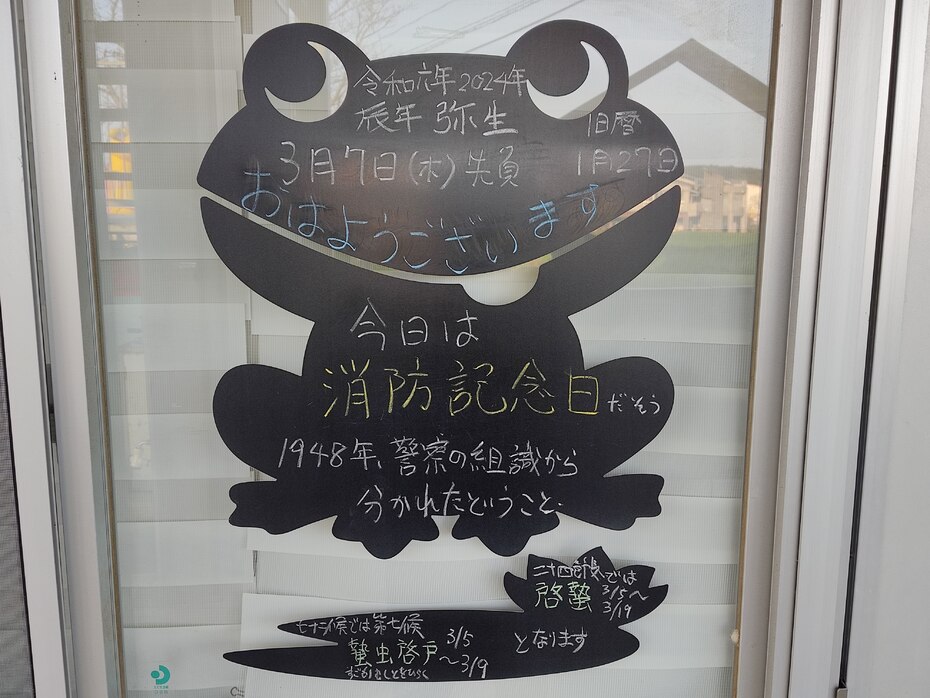 令和六年2024年
辰年 弥生
3月7日(木)先負
旧暦
1月27日
おはようございます
今日は
消防記念日だそう
1948年、警察の組識から
分かれたということ.
二十四節気では
啓蟄 3/5～3/19
七十二候では第七候
蟄虫啓戸 3/5～3/9
すごもりむしとをひらく
となります